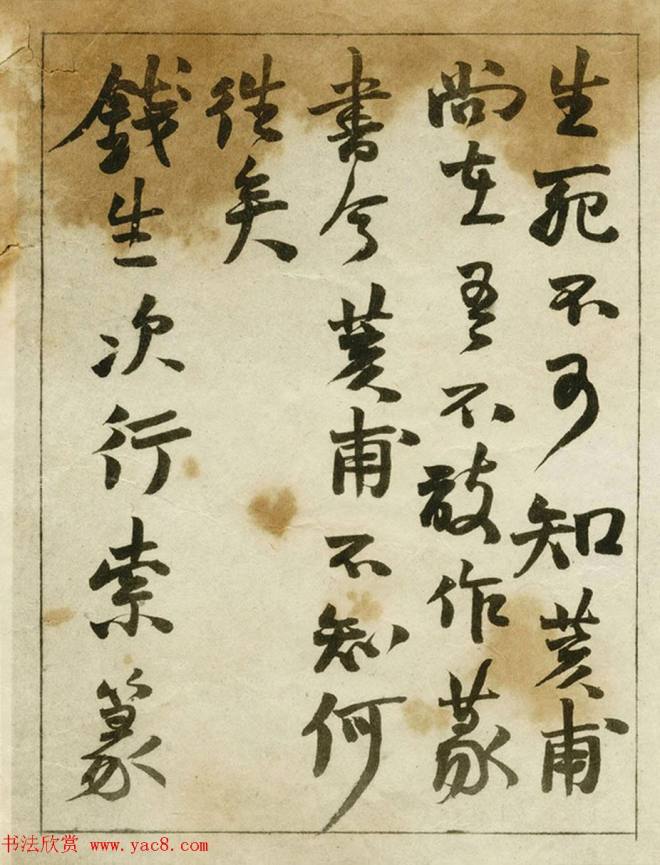 生死不可知荄甫
尚在吾不敢作篆
書今荄甫不知何
往矣
錢生次行索篆
书法欣赏 www.yac8.com